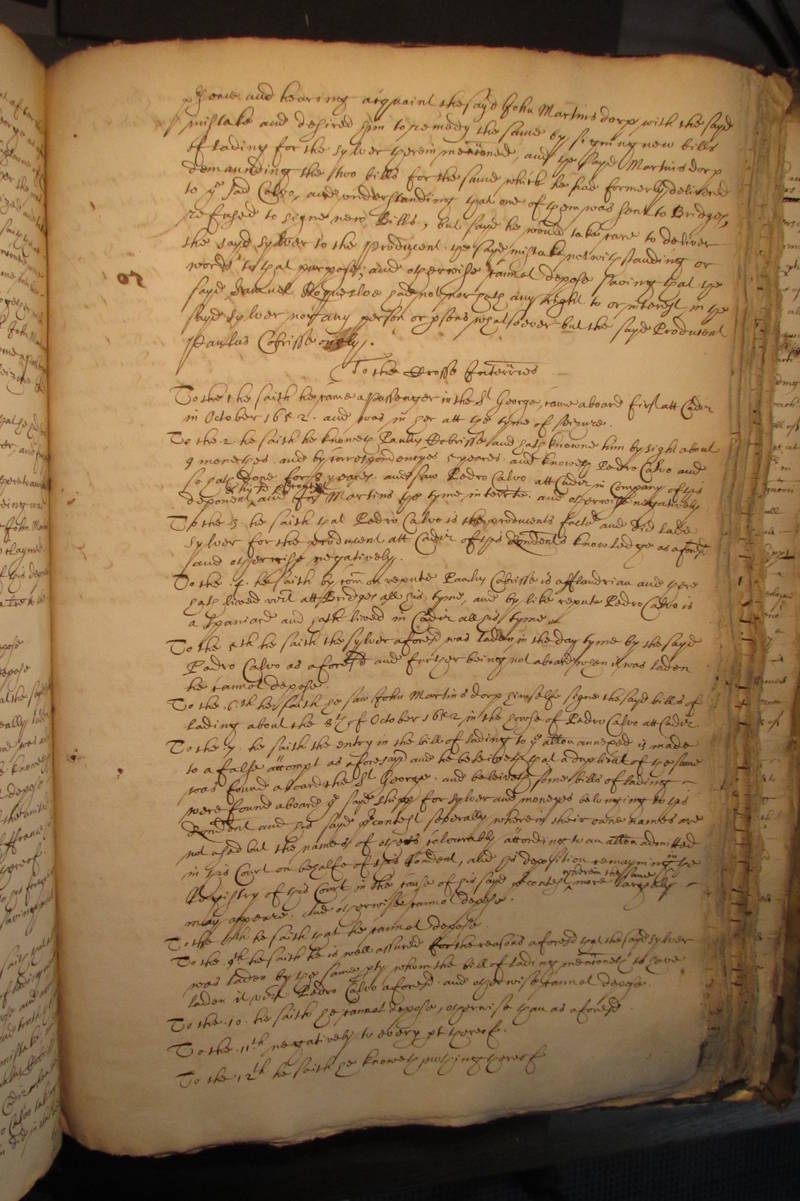 hence and hearing acquaint the sayd John Martins dorp with the sayd
mistake and desired him to remedy the same by signing new bills
of lading for the sylver therein menc̃oned, and the sayd Martins dorp
demaunding the two bills for the same which he had formerly delivered
to ye sad Calvo, and understanding that one of them was sent to Bridges,
refused to signe new Bills, but sayd he would take care to deliver
the sayd sylver to the Producent the sayd mistake notwithstanding or
words to that purpose, and otherwise cannot depose saving that the
sayd had not nor hath any Right to or interest in the
sayd sylver nor any person or psons whatsoever but the sayd Producent
Paulus Cobrisse onely.
To the Crosse Interries
To the he saith he came a passenger in the St George, came aboard first att Cadiz
in October 1652. and was in her att the tyme of seizure.
To the .2. he saith he knoweth Paulus Cobrisse and hath knowne him by sight about
9 moneths. and by correspondencye yeares. and knoweth Pedro Calvo and
so hath done for 3 yeares. and saw Pedro Calvo att Cadiz in Company of this
deponent and Martins the tyme interrte. and otherwise negatively
To the 3. he saith that Pedro Calvo is the producents factor and did lade
sylver for the producent att Cadiz of this rendents knowledge as aforesd
and otherwise negatively.
To the .4. he saith by com̃on repute Paulus Cobrisse is a fflandrian and there
hath lived vizt att Bridges all his tyme, and by like repute Pedro Calvo is
a Spaniard and hath lived in Cadiz all his tyme.
To the 5th he saith the sylver aforesd was laden in the day tyme by the sayd
Pedro Calvo as aforesd and further being not aboard when it was laden
he cannot depose
To the 6th he saith he saw John Martins dorp himselfe signe the sayd bills of
lading about the 8th of October 1652 in the howse of Pedro Calvo att Cadiz
To the 7. he saith the entry in the bill of lading to ye allon annexed is made
to a false accompt as aforesayd and he beleiveth that a duplicat of the same
was found aboard the St George. and beleiveth some bills of lading
were found aboard ye sayd shipp for sylver and moneyes belonging to this
Rendent and his sayd contest severally wherein their owne names are
not used but the names of others colourably according to an allon admitted
in this Court on behalfe of this Rendent, and his deposition remayning in the
Registry of this Court in the cause of his sayd contest wherein the same more largely
may appeare. And otherwise cannot depose.
To the 8th he saith that he cannot depose
To the 9th he saith he is well assured for the reasons aforesd that the sayd sylver
was laden by the same pty whom the bill of lading menconeth to have
laden it vizt Pedro Calvo aforesd. and otherwise cannot depose
To the .10. he saith he cannot depose, otherwise than as aforesd
To the .11th negatively to every pt thereof.
To the .12th he saith he knoweth nothing thereof